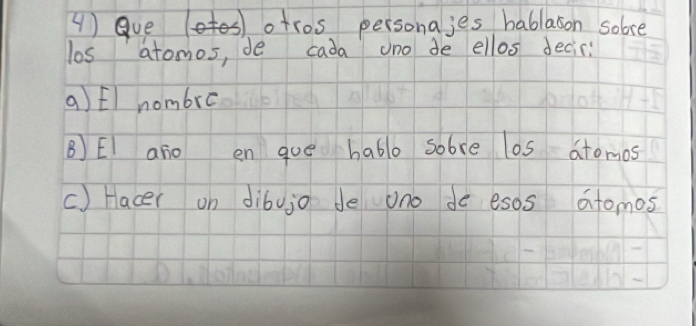 4) Que (otos) otros personajes hablaron sobre
los átomos, de cada uno de ellos decir:
a) El nombre
B) El año en que hablo sobre los átomos
C) Hacer un dibujo de uno de esos átomos